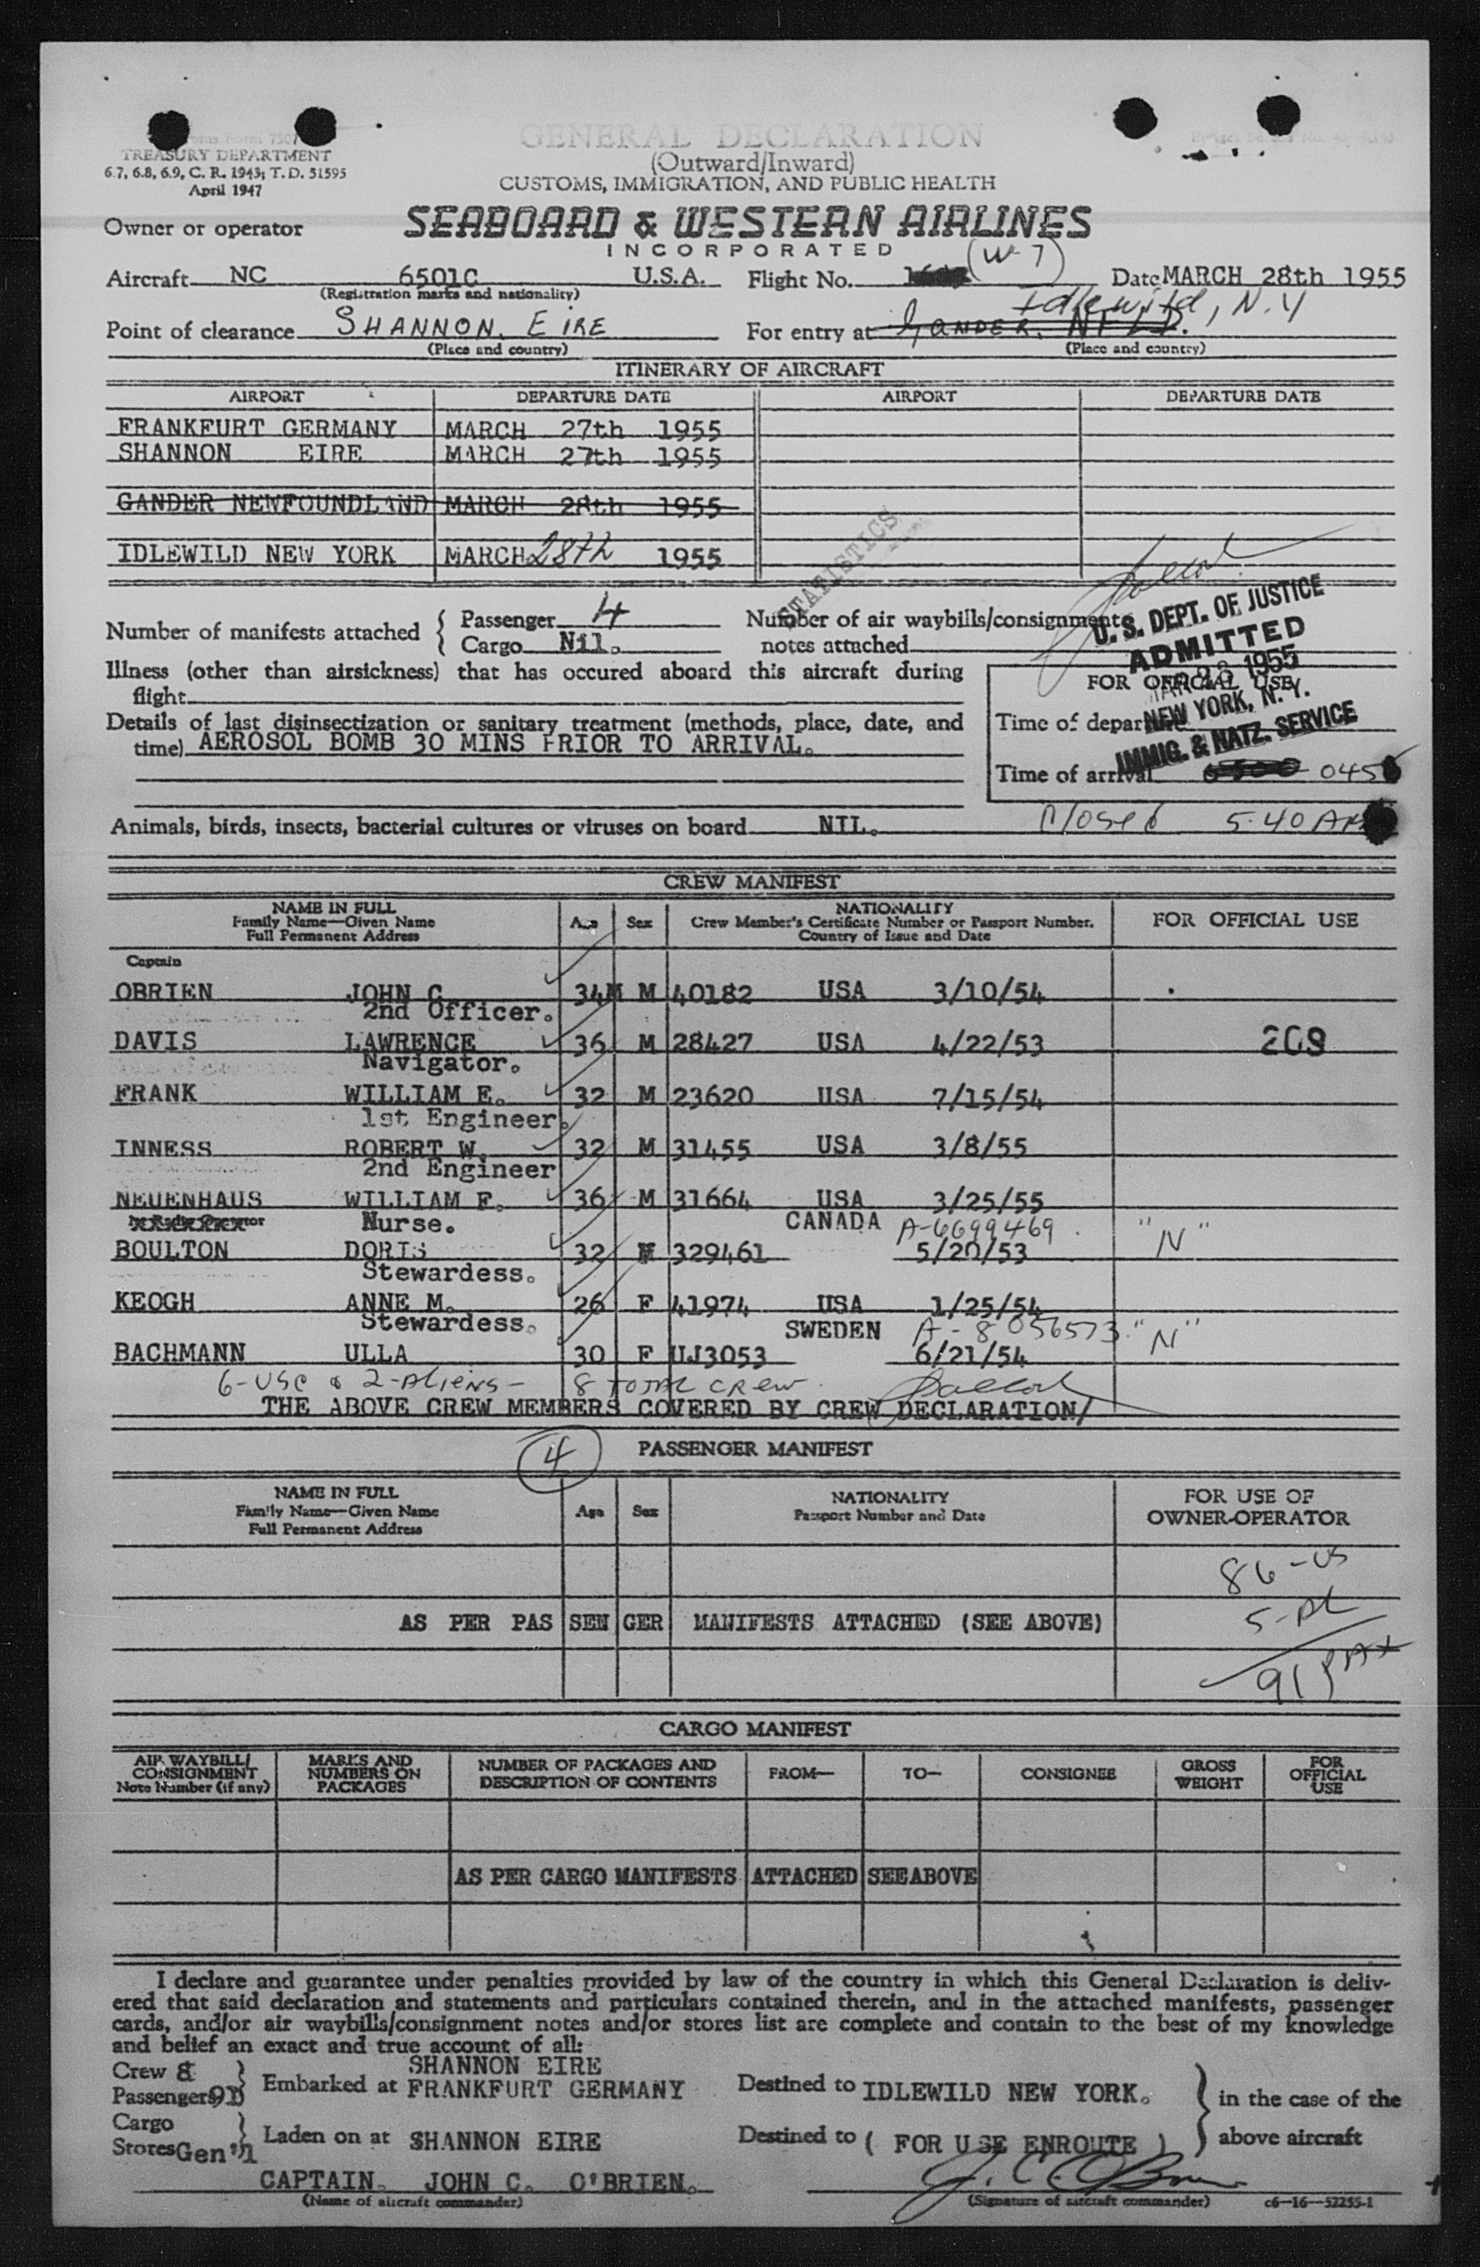 GENERAL DECLARATION
TREASURY DEPARTMENT
(Outward/Inward)
6.7, 6.8, 6.9, C. R. 1943; T. D. 51595
CUSTOMS, IMMIGRATION, AND PUBLIC HEALTH
April 1947
Owner or operator SEABOARD & WESTERN AIRLINES
INCORPORATED
Aircraft NC 6501C U.S.A. Flight No. (W-7) Date MARCH 28th 1955
(Registration marks and nationality)
Idlewild, N.Y
Point of clearance SHANNON, EIRE For entry at GANDER, NFLD.
(Place and country) (Place and country)
ITINERARY OF AIRCRAFT
AIRPORT DEPARTURE DATE AIRPORT DEPARTURE DATE
FRANKFURT GERMANY MARCH 27th 1955
SHANNON EIRE MARCH 27th 1955
GANDER NEWFOUNDLAND MARCH 28th 1955
IDLEWILD NEW YORK MARCH 28th 1955
STATISTICS
Number of manifests attached { Passenger 4 Number of air waybills/consignments
Cargo Nil. notes attached
U. S. DEPT. OF JUSTICE
ADMITTED
1955
NEW YORK, N. Y.
IMMIG. & NATZ. SERVICE
Illness (other than airsickness) that has occured aboard this aircraft during
flight
FOR OFFICIAL USE
Details of last disinsectization or sanitary treatment (methods, place, date, and
time) AEROSOL BOMB 30 MINS PRIOR TO ARRIVAL.
Time of depar
Time of arrival 045
Animals, birds, insects, bacterial cultures or viruses on board NIL. Closed 5.40 AM
CREW MANIFEST
NAME IN FULL
Family Name—Given Name
Full Permanent Address
Age Sex
NATIONALITY
Crew Member's Certificate Number or Passport Number.
Country of Issue and Date
FOR OFFICIAL USE
Captain
OBRIEN JOHN C 34M M 40182 USA 3/10/54
2nd Officer.
DAVIS LAWRENCE 36 M 28427 USA 4/22/53 209
Navigator.
FRANK WILLIAM E. 32 M 23620 USA 7/15/54
1st Engineer.
INNESS ROBERT W. 32 M 31455 USA 3/8/55
2nd Engineer
NEUENHAUS WILLIAM F. 36 M 31664 USA 3/25/55
Nurse. CANADA A-6699469
BOULTON DORIS 32 329461 5/20/53 "N"
Stewardess.
KEOGH ANNE M. 26 F 41974 USA 1/25/54
Stewardess. SWEDEN A-8 056573 "N"
BACHMANN ULLA 30 F UJ3053 6/21/54
6-USC & 2-Aliens- 8 TOTAL CREW
THE ABOVE CREW MEMBERS COVERED BY CREW DECLARATION/
4 PASSENGER MANIFEST
NAME IN FULL
Family Name—Given Name
Full Permanent Address
Age Sex
NATIONALITY
Passport Number and Date
FOR USE OF
OWNER-OPERATOR
86-US
AS PER PAS SEN GER MANIFESTS ATTACHED (SEE ABOVE) 5-AL
91 PAX
CARGO MANIFEST
AIR WAYBILL/
CONSIGNMENT
Note Number (if any)
MARKS AND
NUMBERS ON
PACKAGES
NUMBER OF PACKAGES AND
DESCRIPTION OF CONTENTS
FROM— TO— CONSIGNEE
GROSS
WEIGHT
FOR
OFFICIAL
USE
AS PER CARGO MANIFESTS ATTACHED SEE ABOVE
I declare and guarantee under penalties provided by law of the country in which this General Declaration is deliv-
ered that said declaration and statements and particulars contained therein, and in the attached manifests, passenger
cards, and/or air waybills/consignment notes and/or stores list are complete and contain to the best of my knowledge
and belief an exact and true account of all:
SHANNON EIRE
Crew 8 } Embarked at FRANKFURT GERMANY Destined to IDLEWILD NEW YORK. } in the case of the
Passengers
Cargo } Laden on at SHANNON EIRE Destined to ( FOR USE ENROUTE ) above aircraft
Stores Gen'l
CAPTAIN. JOHN C. O'BRIEN. J. C. O'Brien
(Name of aircraft commander) (Signature of aircraft commander) c6—16—52255-1